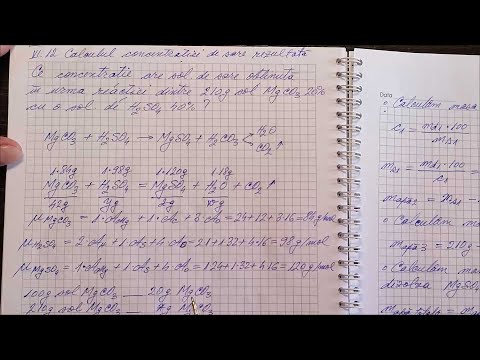 VI.12 Calculul concentrației de sare rezultată
Ce concentrație are sol de sare obținută
în urma reacției dintre 210g sol MgCO3 20%
cu o sol de H2SO4 40%?
MgCO3 + H2SO4 → MgSO4 + H2CO3 H2O
CO2↑
1·84g 1·98g 1·120g 1·18g
MgCO3 + H2SO4 = MgSO4 + H2O + CO2↑
42g yg zg
μMgCO3 = 1·AMg + 1·AC + 3·AO = 24+12+3·16 = 84g/mol
μH2SO4 = 2·AH + 1·AS + 4·AO = 2·1+1·32+4·16 = 98g/mol
μMgSO4 = 1·AMg + 1·AS + 4·AO = 1·24+1·32+4·16 = 120g/mol
100g sol MgCO3 __ 20g MgCO3
210g sol MgCO3 __ g MgCO3
Data
o Calculăm masa
c1 = md1·100
ms1
ms1 = md1·100
c1
mapă2 = ms1 -
o Calculăm
mapă3 = 210g
o Calculăm
dizolva MgSO4
mapă totală = m